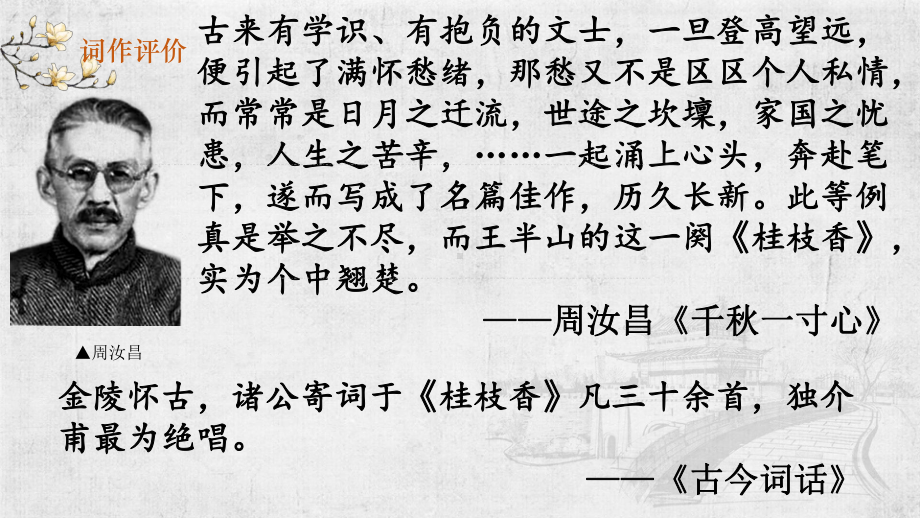 词作评价
古来有学识、有抱负的文士，一旦登高望远，
便引起了满怀愁绪，那愁又不是区区个人私情，
而常常是日月之迁流，世途之坎壈，家国之忧
患，人生之苦辛，……一起涌上心头，奔赴笔
下，遂而写成了名篇佳作，历久长新。此等例
真是举之不尽，而王半山的这一阕《桂枝香》，
实为个中翘楚。
——周汝昌《千秋一寸心》
▲周汝昌
金陵怀古，诸公寄词于《桂枝香》凡三十余首，独介
甫最为绝唱。
——《古今词话》